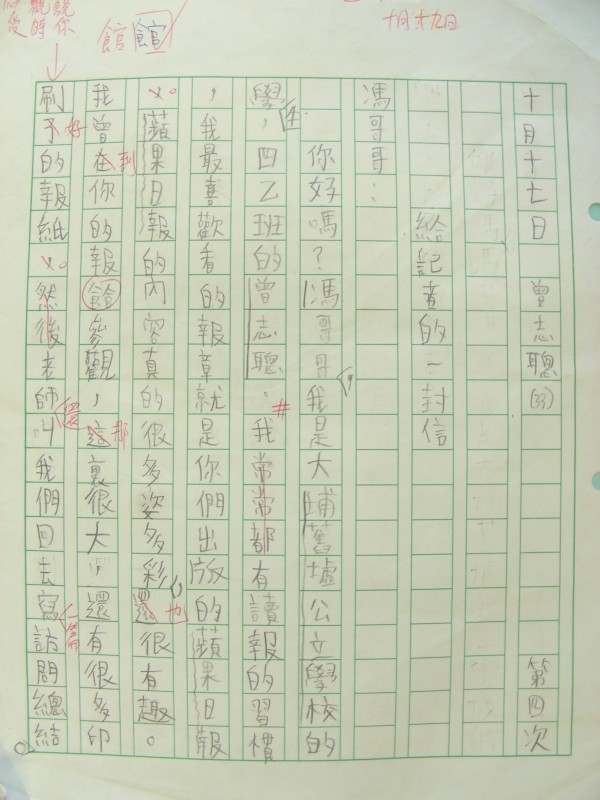 十月十七日 曾志聰(33) 第四次
給記者的一封信
馮哥哥:
你好嗎?馮哥哥我是大埔舊墟公立學校的
學,四乙班的曾志聰。我常常都有讀報的習慣
,我最喜歡看的報章就是你們出版的蘋果日報
。蘋果日報的內容真的很多姿多彩,還很有趣。
我曾在你的報館參觀,這裏很大,還有很多印
刷不的報紙。然後老師叫我們回去寫訪問總結
十月廿九日
館 館
好
到
那
還
也
一篇
生